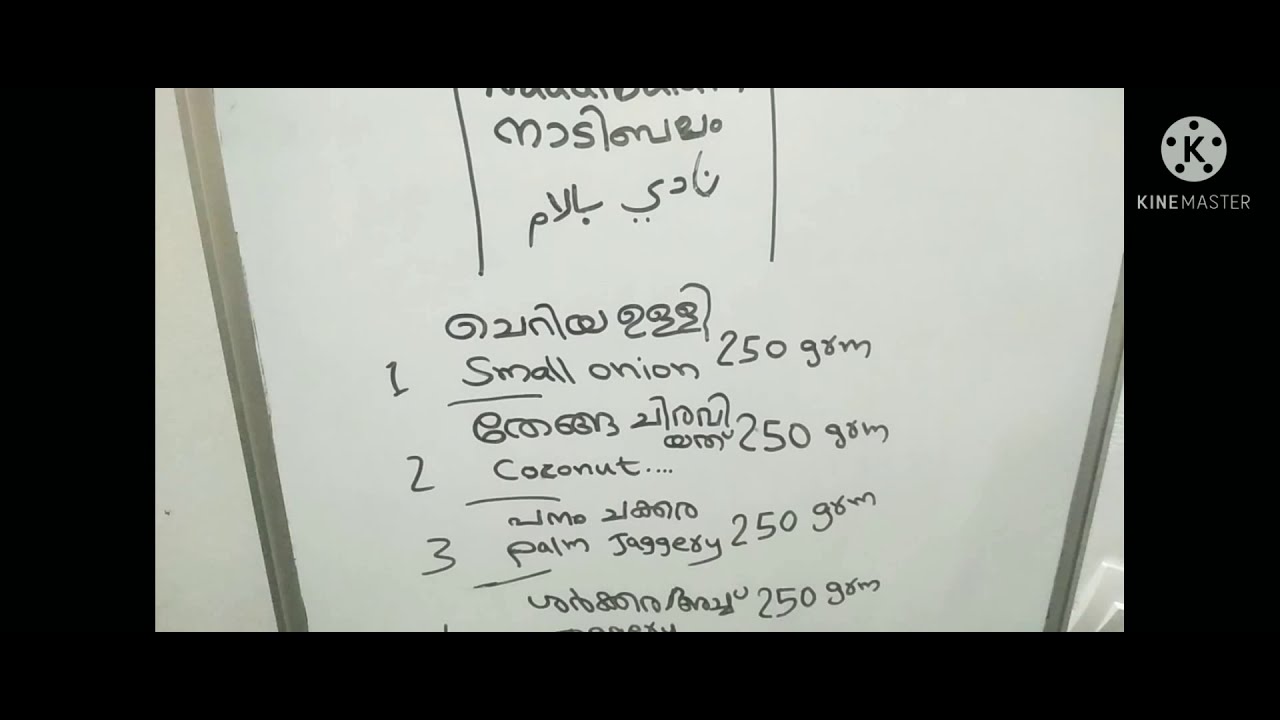 നാടിബലം
نادي بالام
ചെറിയ ഉള്ളി
1 Small onion 250 grm
തേങ്ങ ചിരവി
യത് 250 grm
2 Coconut....
പനം ചക്കര
3 Palm Jaggery 250 grm
ശർക്കര/അച്ച് 250 grm
K
KINEMASTER